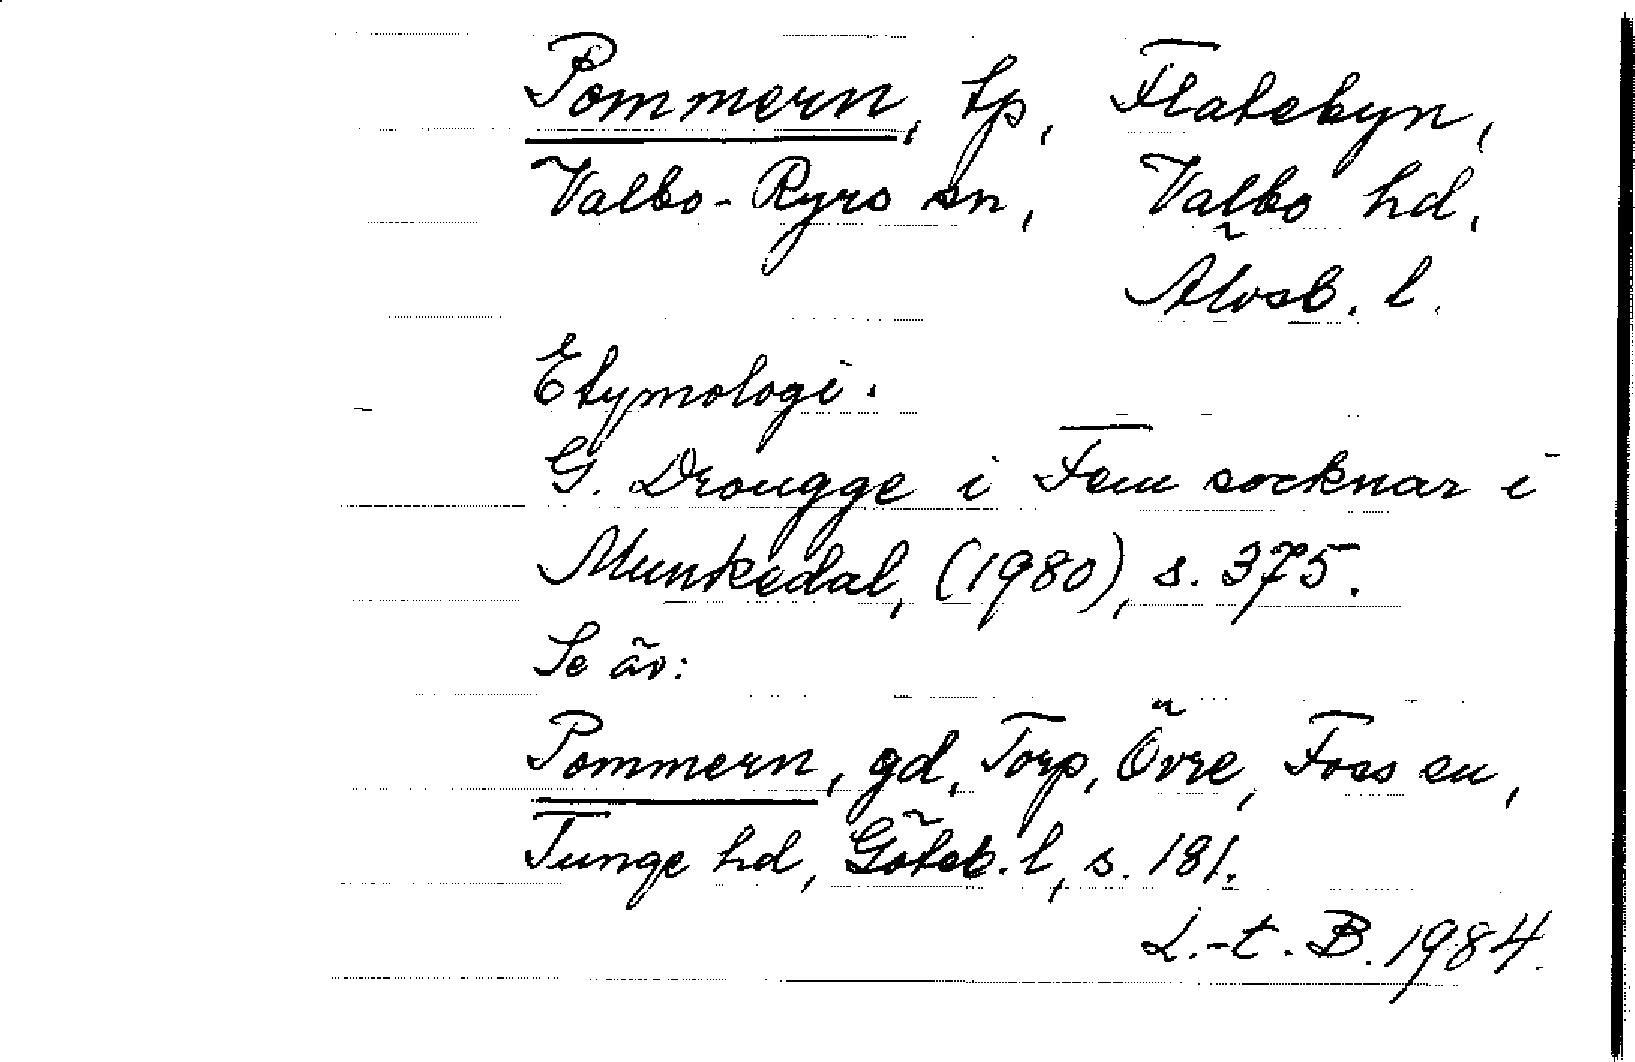 Pommern, tp, Flatebyn,
Valbo-Ryrs sn, Valbo hd,
Älvsb. l.
Etymologi.
G. Drougge i Fem socknar i
Munkedal, (1980), s. 375.
Se äv:
Pommern, gd, Torp, Övre, Foss sn,
Tunge hd, Göteb. l, s. 181.
L.-t. B. 1984.